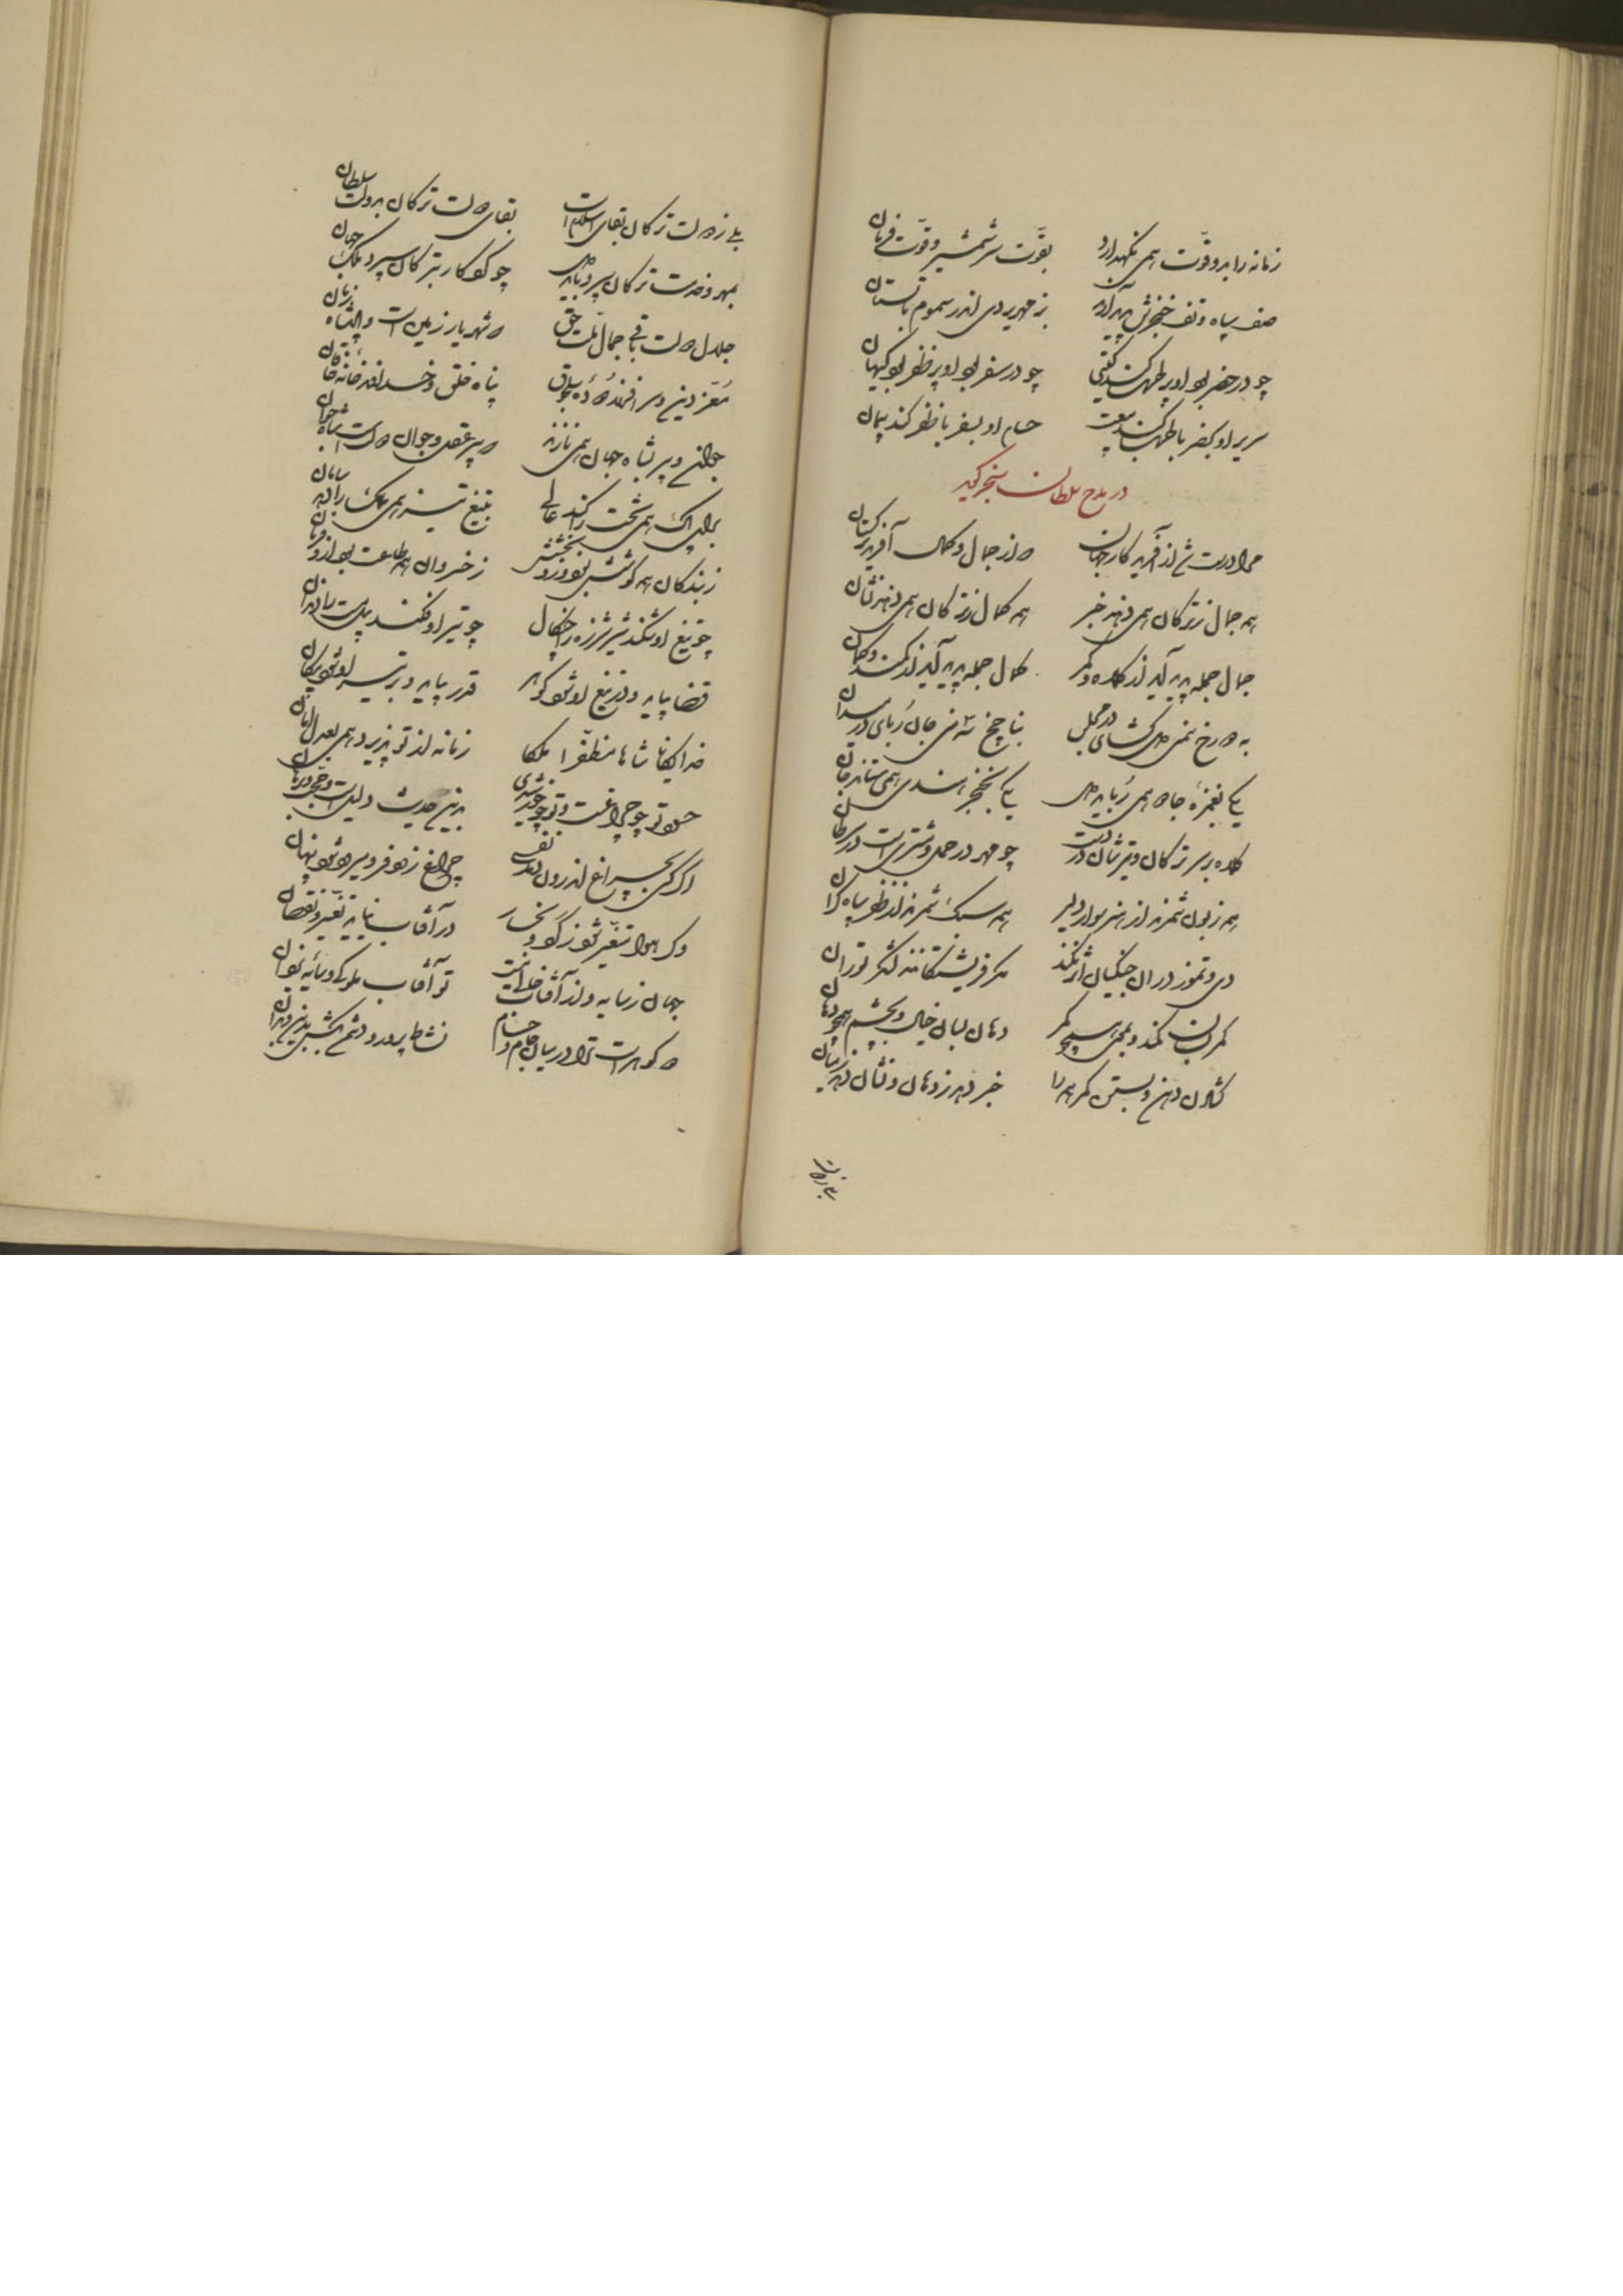 زمانه را بدو قوت همی نگهدارد بقوت سر شمشیر و قوت فرمان
صف سپاه و تف خنجرش پدید آرد ز مهریر دی اندر سموم تابستان
چو در حضر بود او پر طرب کند گیتی چو در سفر بود او پر ظفر بود کیهان
سریر او بحضر با طرب کند بیعت حسام او بسفر با ظفر کند پیمان
در مدح سلطان سنجر گوید
از جمال و کمال آفرید ترکستان
همه جمال ز ترکان همی دهند خبر همه کمال ز ترکان همی دهند نشان
جمال جمله پدید آید از کلاه و کمر کمال جمله پدید آید از کمند و کمان
به دو رخ دل گشای در مجلس بناچخ جان ربای در میدان
یکی بغمزه جادو همی رباید دل یکی بخنجر هندی همی ستاند جان
کلاه بر سر ترکان و تیرشان در دست چو مهر در حمل و مشتری است در سرطان
همه زبون شمرند از هنر سوار دلیر همه سبک شمرند از ظفر سپاه گران
دی و تموز در آن جنگیان اثر نکند مگر فریشتگانند لشکر توران
کمر میان کمند و بموی همچو کمر دهان لبان خیال و بچشم همچو دهان
گشادن دهن و بستن کمر همه را خبر دهد ز دهان و نشان دهد ز میان
بلی ز دولت
بلی ز دولت ترکان بقای اسلام است بقای دولت ترکان بدولت سلطان
بمهر و خدمت ترکان سپرد باید دل چو کردگار بترکان سپرد ملک جهان
جلال دولت باقی جمال ملت حق شهریار زمین است و پادشاه زمان
معز دین و سر افراز دوده سلجوق پناه خلق و خداوند خانه خاقان
جوان و پیر بشاه جهان همی نازند پیر عقل و جوان دولت است شاه جوان
برای پاک همی تخت را کند عالی بتیغ تیز همی ملک را دهد سامان
ز بندگان همه کوشش بود وزو بخشش ز خسروان همه طاعت بود ازو فرمان
چو تیغ او شکند شیر شرزه را چنگال چو تیر او فکند پیل مست را دندان
قضا بیاید و در تیغ او شود گوهر قدر بیاید و بر تیر او شود پیکان
خدایگانا شاها مظفرا ملکا زمانه از تو پذیرد همی بعدل امان
حسود تو چو چراغست و تو چو خورشیدی بدین حدیث دلیل است و حجت و برهان
اگر کسی بچراغ اندرون دمد نفسی چراغ زو فرو میرد و شود پنهان
وگر هوا متغیر شود ز گرد و بخار در آفتاب نیاید تغیر و نقصان
جهان ز سایه و از آفتاب خالی نیست تو آفتاب ملوکی و سایه یزدان
دو گوهر است ترا در میان جام و حسام نشاط پرورد و دشمن بکش بدین و بدان